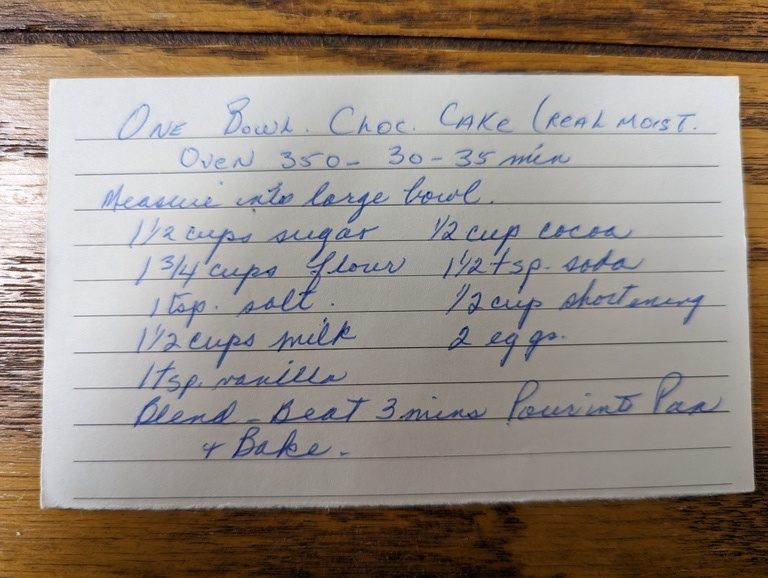 ONE BOWL. CHOC. CAKE (REAL MOIST.
OVEN 350- 30-35 min
Measure into large bowl.
1 1/2 cups sugar 1/2 cup cocoa
1 3/4 cups flour 1 1/2 tsp. soda
1 tsp. salt. 1/2 cup shortening
1 1/2 cups milk 2 eggs.
1 tsp. vanilla
Blend - Beat 3 mins Pour into Pan
+ Bake.